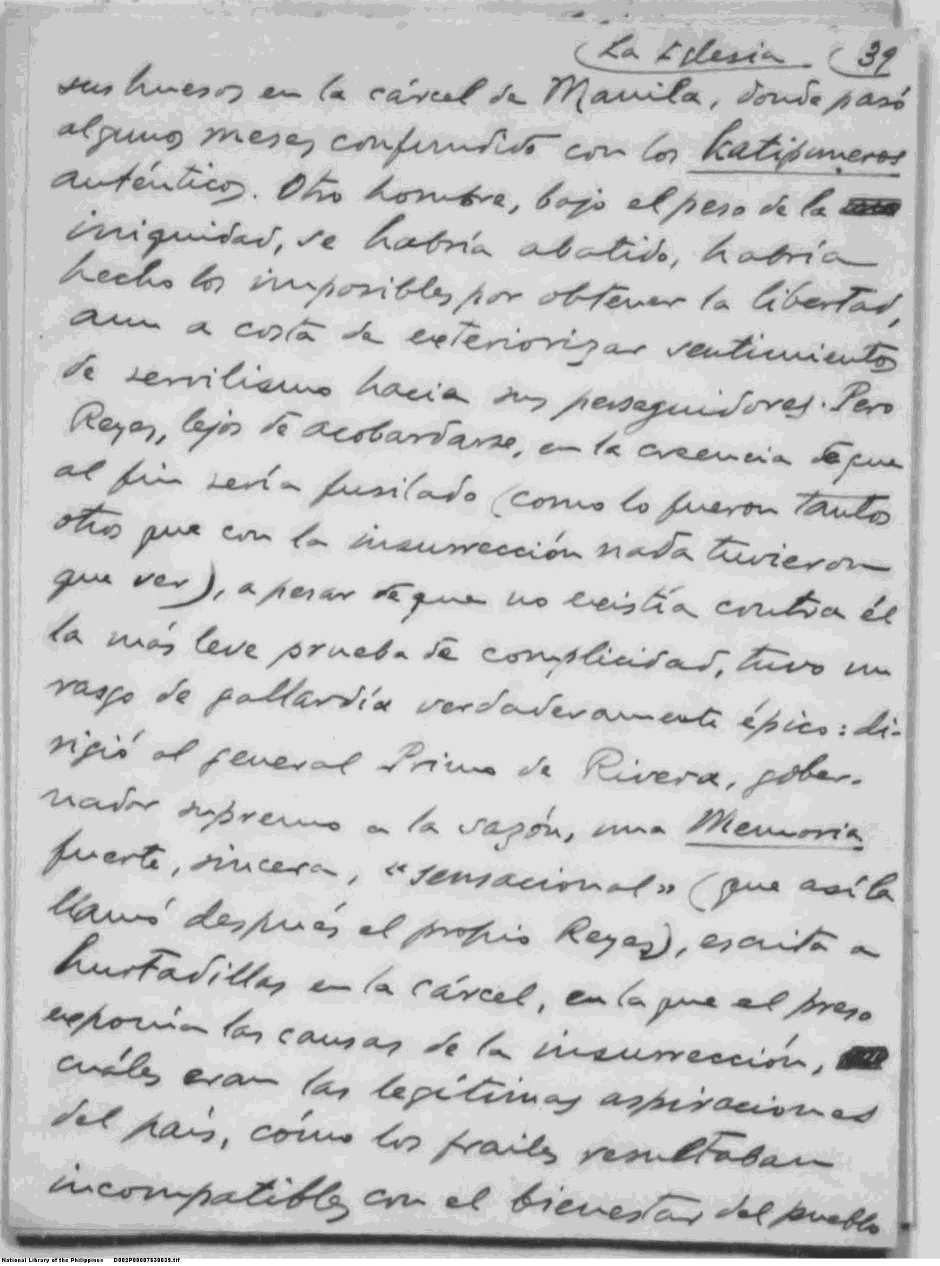 La Iglesia (39
sus huesos en la cárcel de Manila, donde pasó
algunos meses confundido con los katipuneros
auténticos. Otro hombre, bajo el peso de la
iniquidad, se habría abatido, habría
hecho los imposibles por obtener la libertad,
aun a costa de exteriorizar sentimientos
de servilismo hacia sus perseguidores. Pero
Reyes, lejos de acobardarse, en la creencia de que
al fin sería fusilado (como lo fueron tantos
otros que con la insurrección nada tuvieron
que ver), a pesar de que no existía contra él
la más leve prueba de complicidad, tuvo un
rasgo de gallardía verdaderamente épico: di-
rigió al general Primo de Rivera, gober-
nador supremo a la sazón, una Memoria
fuerte, sincera, "sensacional" (que así la
llamó después el propio Reyes), escrita a
hurtadillas en la cárcel, en la que el preso
exponía las causas de la insurrección,
cuáles eran las legítimas aspiraciones
del país, cómo los frailes resultaban
incompatibles con el bienestar del pueblo
National Library of the Philippines D002P00007639039.tif